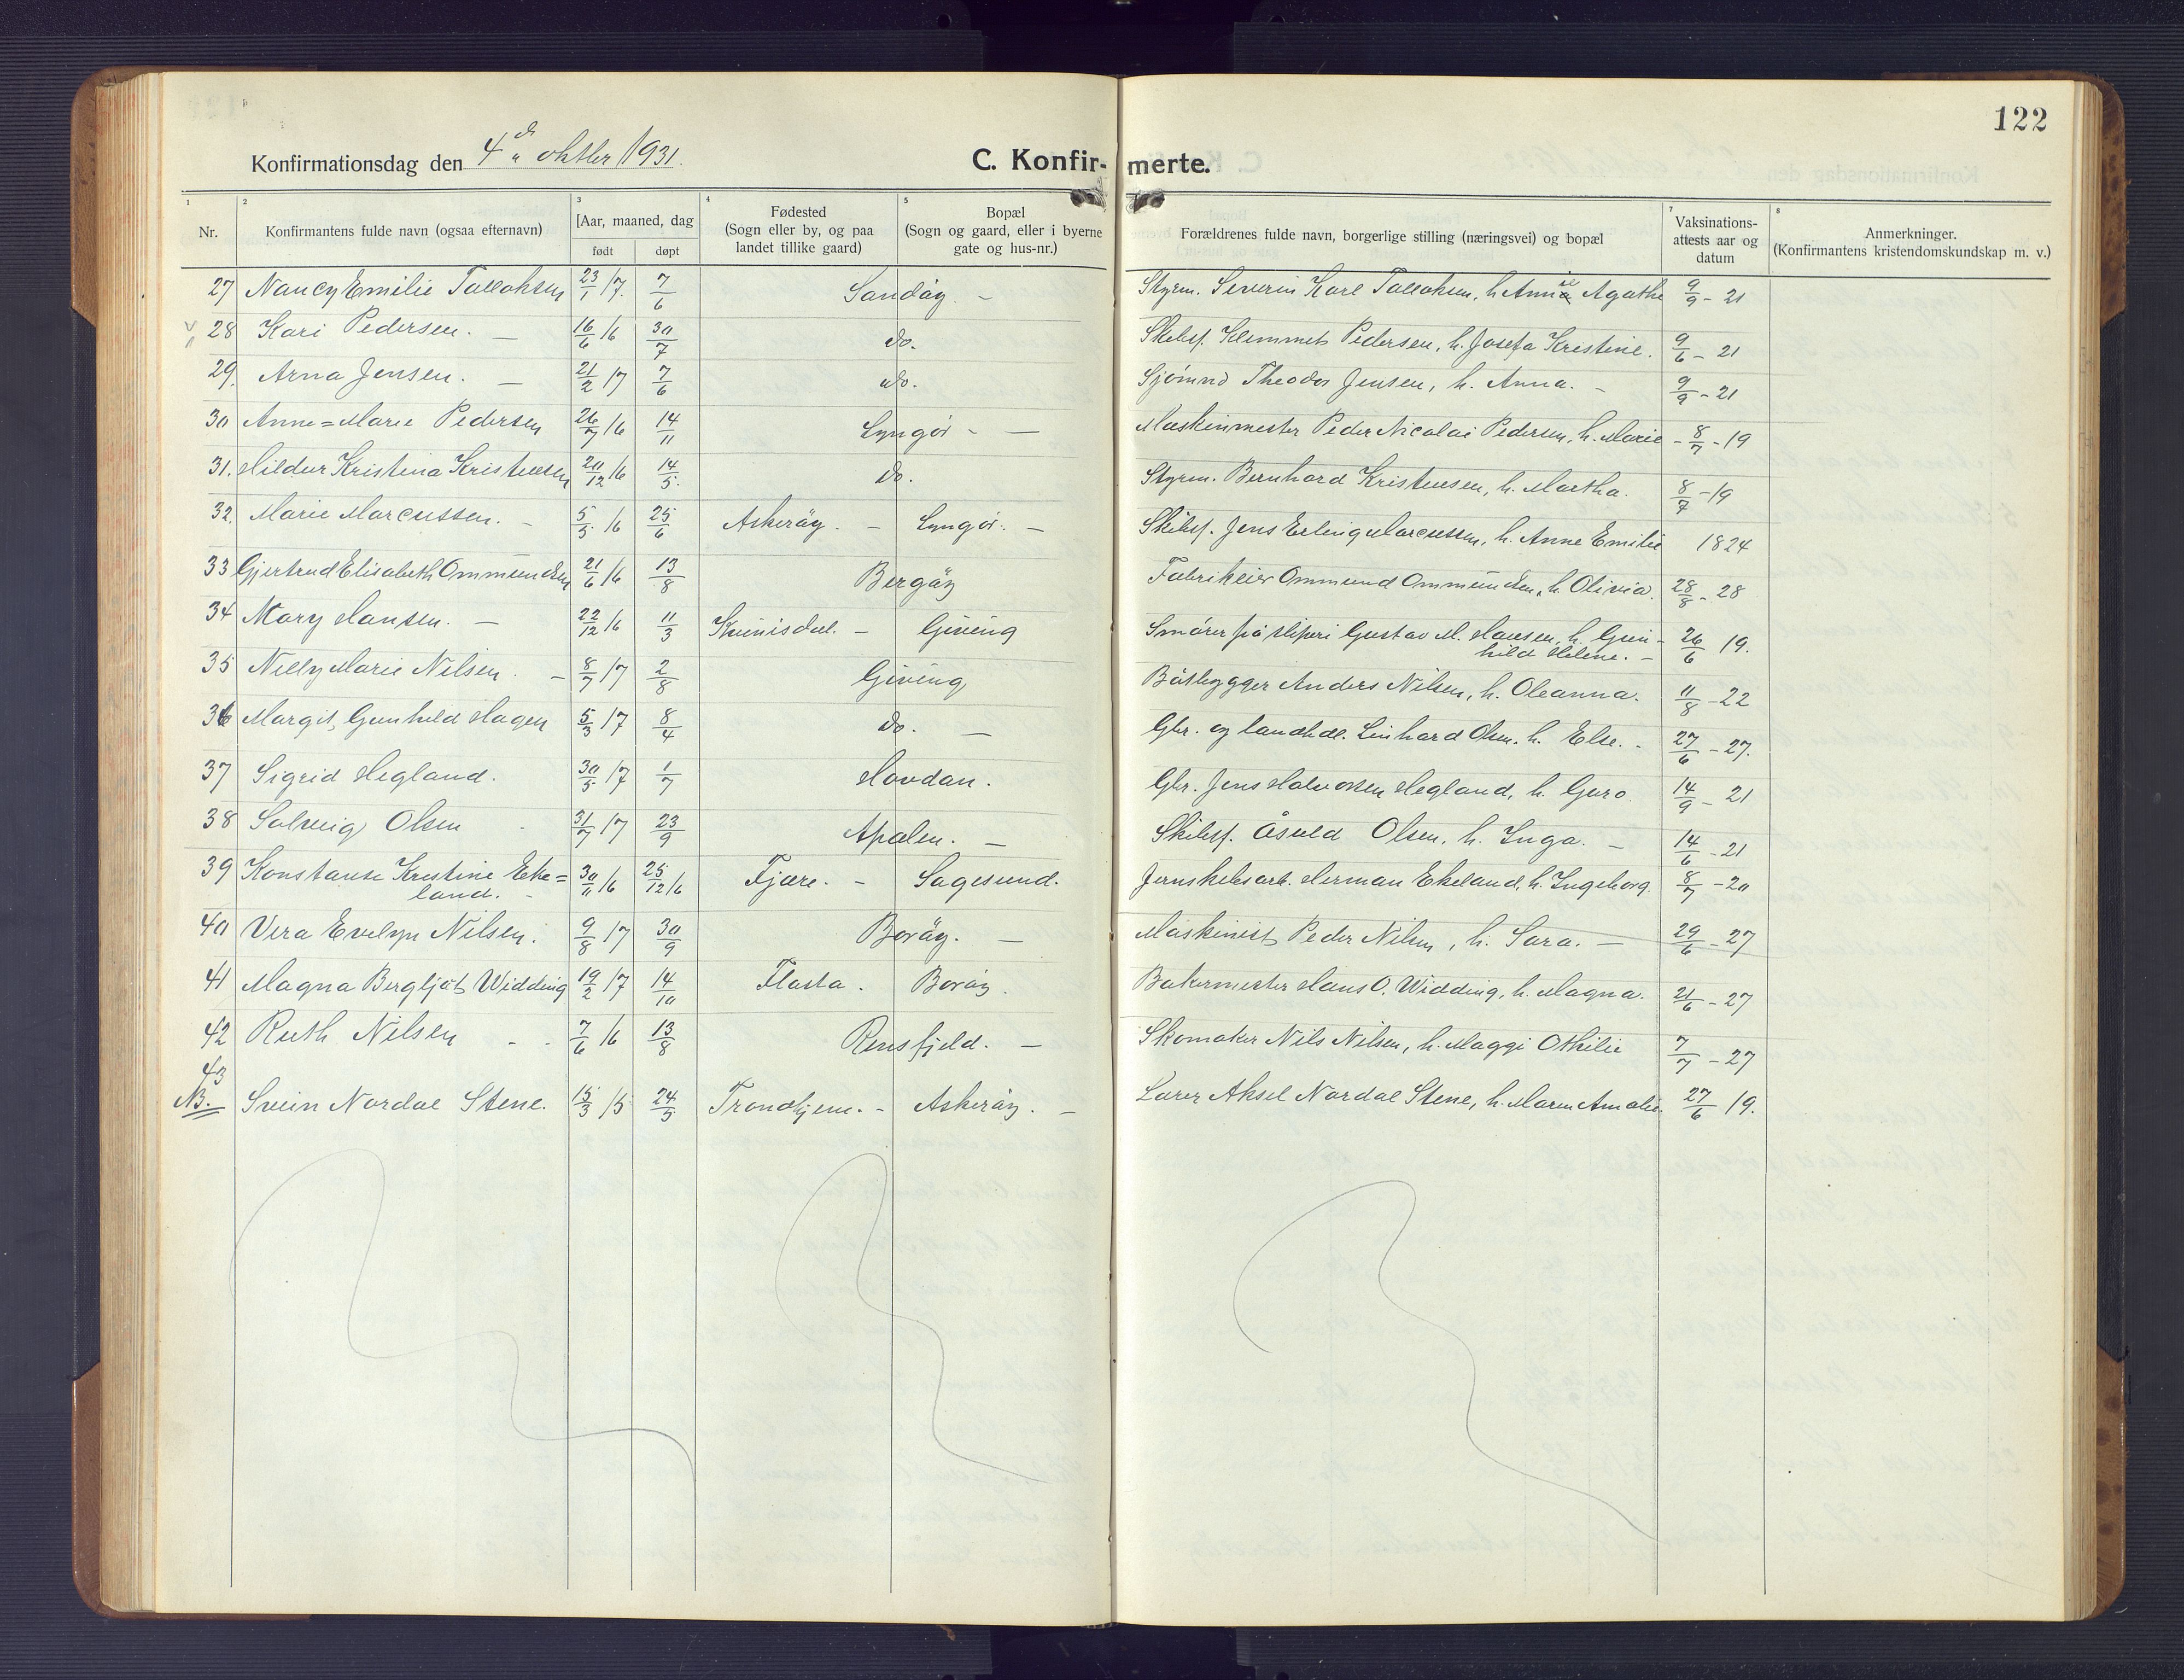 122
Konfirmationsdag den 4de oktbr 1931.
C. Konfirmerte.
1 2 3 4 5 7 8
Nr. Konfirmantens fulde navn (ogsaa efternavn) [Aar, maaned, dag født døpt Fødested (Sogn eller by, og paa landet tillike gaard) Bopæl (Sogn og gaard, eller i byerne gate og hus-nr.) Forældrenes fulde navn, borgerlige stilling (næringsvei) og bopæl Vaksinations-attests aar og datum Anmerkninger. (Konfirmantens kristendomskundskap m. v.)
27 Nancy Emilie Tallaksen 23/1 17. 7/6 Sandøy. - Styrm. Severin Karl Tallaksen, h. Anna Agathe 9/9 - 21
28 Kari Pedersen. - 16/6 16 30/7 do. Skibsf. Klemmet Pedersen, h. Josefa Kristine. 9/6 - 21
29. Arna Jensen. - 21/2 17 7/6 do. Sjømnd Theodor Jensen, h. Anna. - 9/9 - 21
30 Anne=Marie Pedersen 26/7 16 14/11 Lyngør - - Maskinmester Peder Nicolai Pedersen, h. Marie - 8/7 - 19
31. Hildur Kristina Kristensen 20/12 16 14/5. do. Styrm. Bernhard Kristensen, h. Martha. 8/7 - 19
32. Marie Marcussen. - 5/5 16 25/6 Askerøy. - Lyngør. - Skibsf. Jens Erling Marcussen, h. Anne Emilie 1824
33 Gjertrud Elisabeth Ommundsen 21/6 16 13/8 Bergøy Fabrikeier Ommund Ommundsen, h. Olivia. 28/8 - 28
34 Mary Hansen. - 22/12 16 11/3 Kvinisdal. - Giving Smører på sliperi Gustav M. Hansen, h. Gun-
hild Helene. - 26/6 19.
35 Nelly Marie Nilsen. - 8/7 17 2/8 Giving Båtbygger Anders Nilsen, h. Oleanna. 11/8 - 22
36 Margit Gunhild Hagen 5/3 17 8/4 do. - Gbr. og landhdl. Linhard Olsen, h. Else. - 27/6 - 27.
37 Sigrid Hegland. 30/5 17 1/7 Hovdan. Gbr. Jens Halvorsen Hegland, h. Guro. 14/9 - 21
38 Solveig Olsen 31/7 17 23/9 Apalen. - Skibsf. Åsuld Olsen, h. Inga. - 14/6 - 21
39 Konstanse Kristine Eke=
land. - 30/11 16 25/12 16 Fjære. - Sagesund. Jernskibsarb. Herman Ekeland, h. Ingeborg. 8/7 - 20
40 Vera Evelyn Nilsen. 9/8 17 30/9 Borøy. - Maskinist Peder Nilsen, h. Sara. - 29/6 - 27
41 Magna Bergljot Widding 19/2 17 14/10 Flosta. Borøy. Bakermester Hans O. Widding, h. Magna. 21/6 - 27
42 Ruth Nilsen - - 7/6 16 13/8 Rensfjeld. - Skomaker Nils Nilsen, h. Maggi Othilie 7/7 - 27
43
NB. Svein Nordal Stene. 15/3 15 24/5 Trondhjem. - Askerøy. - Lærer Aksel Nordal Stene, h. Maren Amalie. 27/6 19.